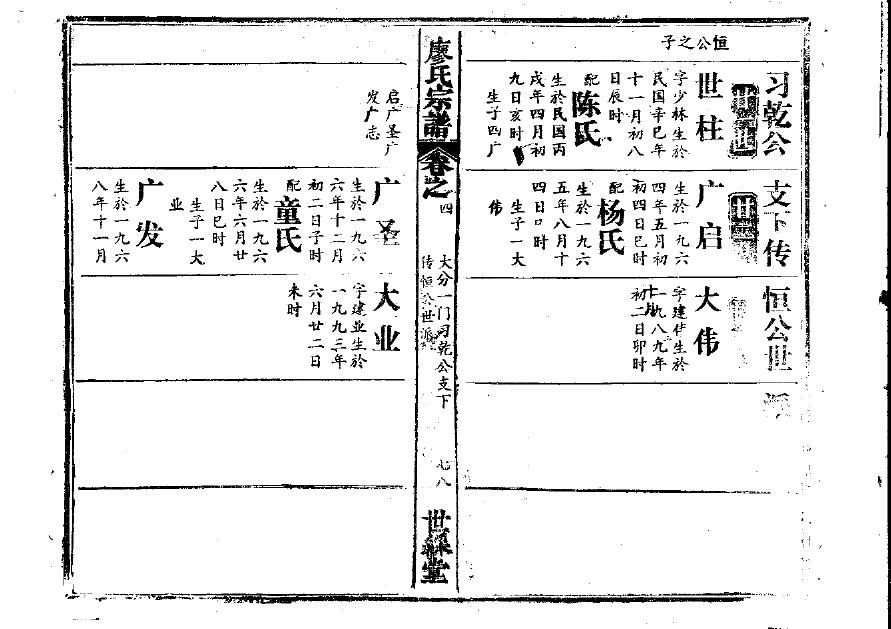 习乾公支下传恒公世派
恒公之子
世柱
字少林生於
民国辛巳年
十一月初八
日辰时
配
陈氏
生於民国丙
戌年四月初
九日亥时
生子四广
启广圣广
发广志
广启
生於一九六
四年五月初
初四日巳时
配
杨氏
生於一九六
五年八月十
四日口时
生子一大
伟
大伟
字建伟生於
一九八九年
初二日卯时
廖氏宗谱
卷之四
大分一门习乾公支下
传恒公世派
七八
世䌽堂
广圣
生於一九六
六年十二月
初二日子时
配
童氏
生於一九六
六年六月廿
八日巳时
生子一大
业
广发
生於一九六
八年十一月
大业
字建业生於
一九九三年
六月廿二日
未时